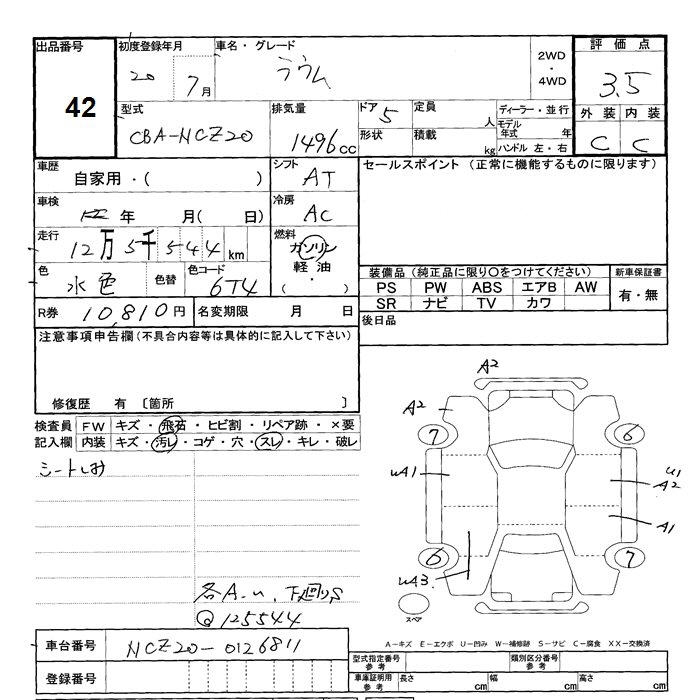 出品番号 42
初度登録年月 20 7月
車名・グレード ラウム
2WD・4WD
評価点 3.5
外装 内装
C C
型式 CBA-NCZ20
排気量 1496cc
ドア 5
形状
定員 人
積載 kg
ディーラー・並行
モデル年式 年
ハンドル 左・右
車歴 自家用・( )
シフト AT
セールスポイント (正常に機能するものに限ります)
車検 年 月( 日)
冷房 AC
走行 12万5千544km
燃料 ガソリン・軽油・( )
色 水色 色替 色コード 6T4
装備品 (純正品に限り○をつけてください)
新車保証書
PS PW ABS エアB AW
有・無
SR ナビ TV カワ
R券 10,810円 名変期限 月 日
後日品
注意事項申告欄 (不具合内容等は具体的に記入して下さい)
修復歴 有 〔箇所 〕
検査員 FW キズ・飛石・ヒビ割・リペア跡・×要
記入欄 内装 キズ・汚レ・コゲ・穴・スレ・キレ・破レ
シートしみ
各A-u、下廻りS
Q125544
A2
A2
7 6
uA1
u1
A2
A1
6 7
uA3
スペア
A-キズ E-エクボ U-凹み W-補修跡 S-サビ C-腐食 XX-交換済
車台番号 NCZ20-0126811
登録番号
型式指定番号 参考 類別区分番号 参考
車庫証明用 参考 長さ cm 幅 cm 高さ cm